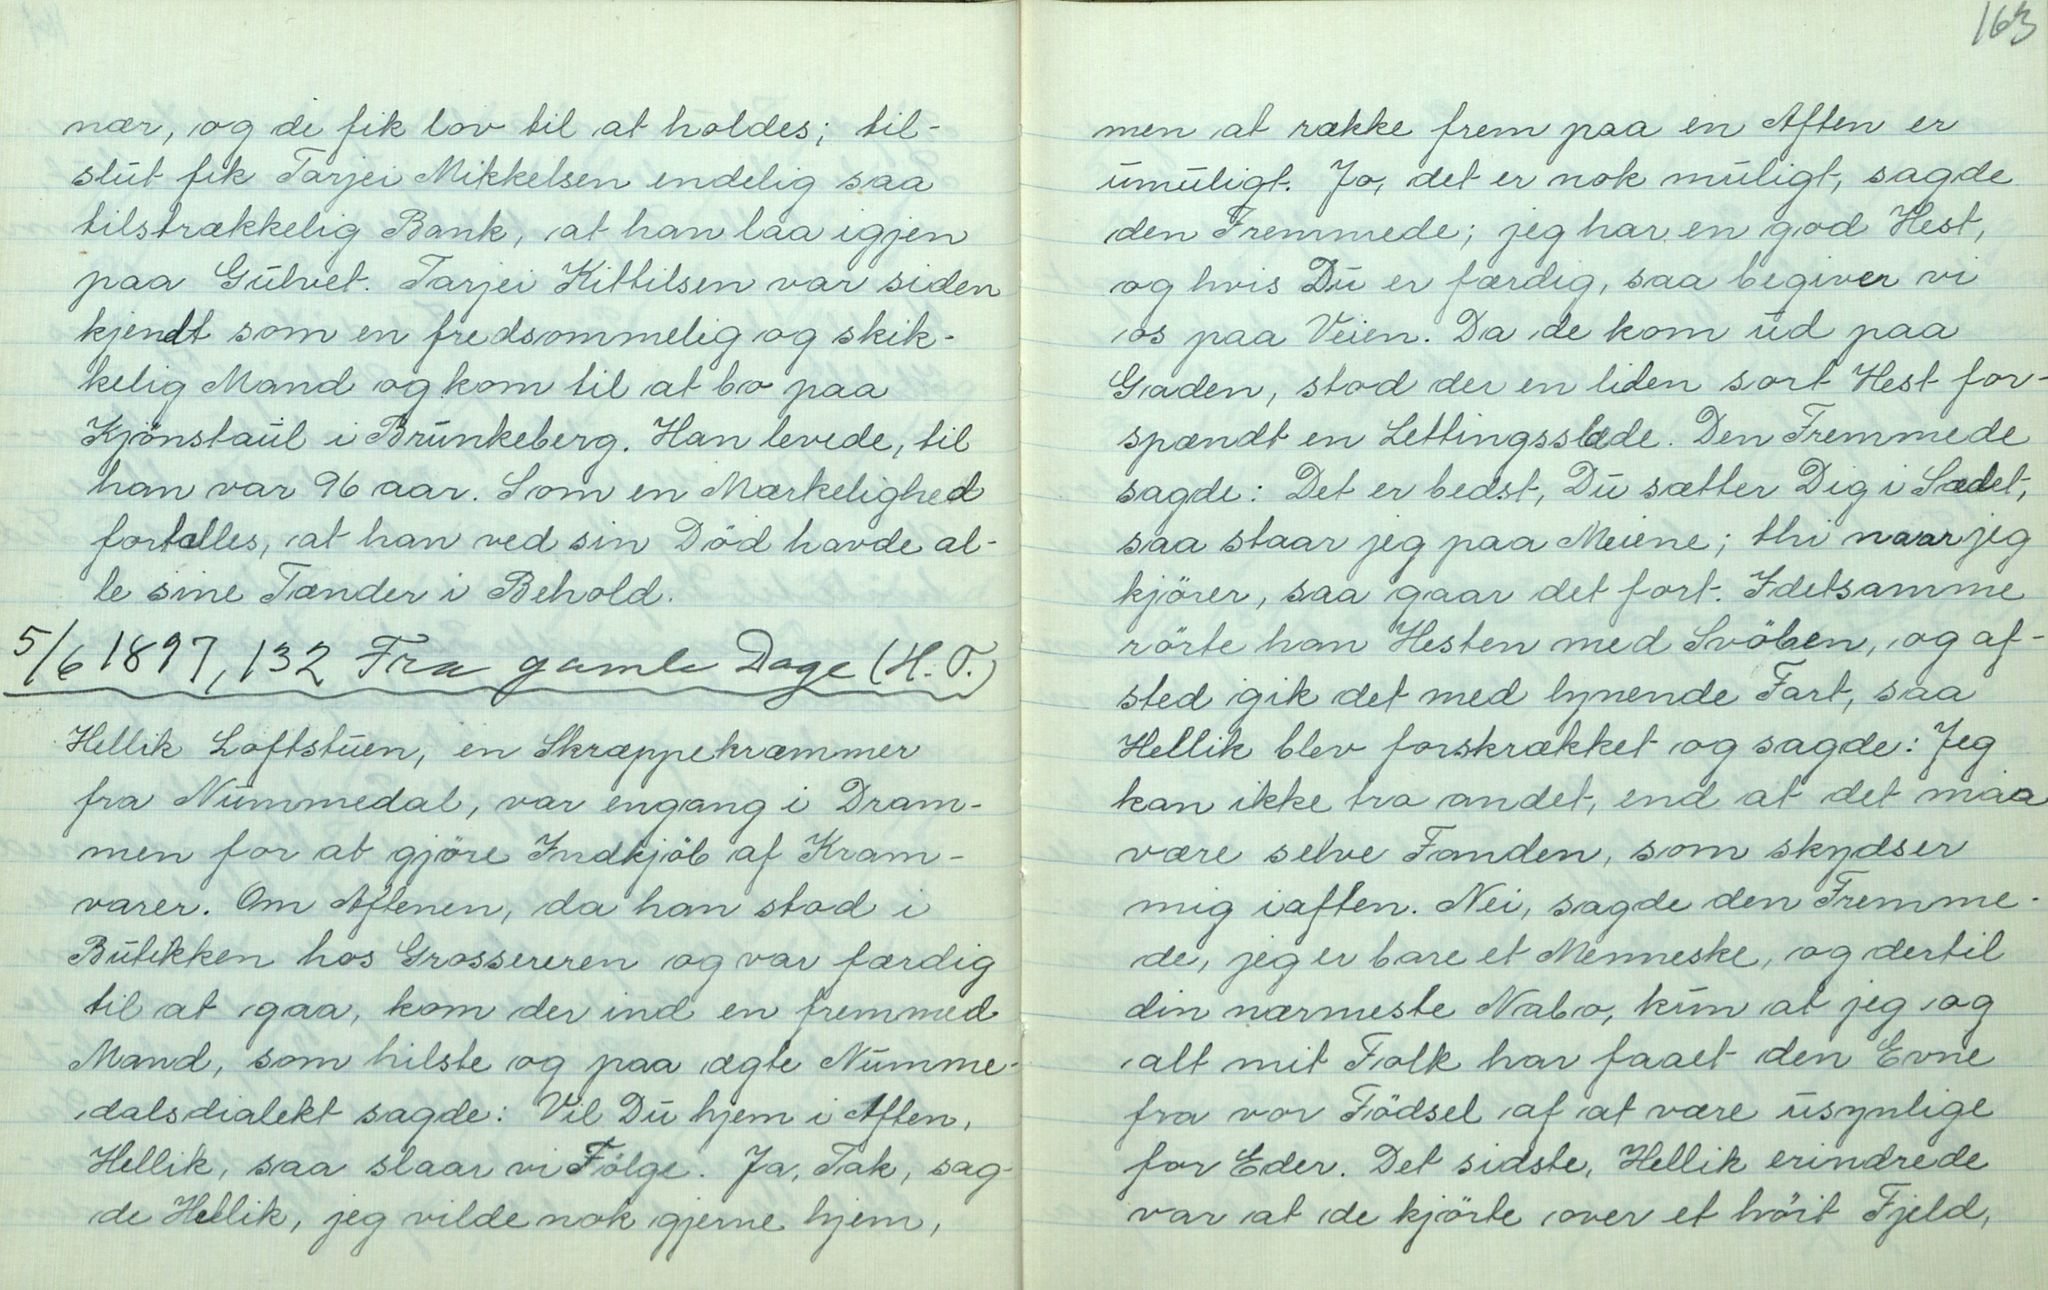 nær, og de fik lov til at holdes; til-
slut fik Tarjei Mikkelsen endelig saa
tilstrækkelig Bank, at han laa igjen
paa Gulvet. Tarjei Kittilsen var siden
kjendt som en fredsommelig og skik-
kelig Mand og kom til at bo paa
Kjönstaul i Brunkeberg. Han levede, til
han var 96 aar. Som en Mærkelighed
fortælles, at han ved sin Död havde al-
le sine Tænder i Behold.
5/6 1897, 132 Fra gamle Dage (H. T.)
Hellik Loftstuen, en Skræppekræmmer
fra Nummedal, var engang i Dram-
men for at gjöre Indkjöb af Kram-
varer. Om Aftenen, da han stod i
Butikken hos Grossereren og var færdig
til at gaa, kom der ind en fremmed
Mand, som hilste og paa ægte Numme-
dalsdialekt sagde: Vil Du hjem i Aften,
Hellik, saa slaar vi Fölge. Ja, Tak, sag-
de Hellik, jeg vilde nok gjerne hjem,
163
men at række frem paa en Aften er
umuligt. Jo, det er nok muligt, sagde
den Fremmede; jeg har en god Hest,
og hvis Du er færdig, saa begiver vi
os paa Veien. Da de kom ud paa
Gaden, stod der en liden sort Hest for-
spændt en Lettingsslæde. Den Fremmede
sagde: Det er bedst, Du sætter Dig i Sædet,
saa staar jeg paa Meiene; thi naar jeg
kjörer, saa gaar det fort. Idetsamme
rörte han Hesten med Svöben, og af-
sted gik det med lynende Fart, saa
Hellik blev forskrækket og sagde: Jeg
kan ikke tro andet, end at det maa
være selve Fanden, som skydser
mig iaften. Nei, sagde den Fremme-
de, jeg er bare et Menneske, og dertil
din nærmeste Nabo, kun at jeg og
alt mit Folk har faaet den Evne
fra vor Födsel af at være usynlige
for Eder. Det sidste, Hellik erindrede
var at de kjörte over et höit Fjeld,